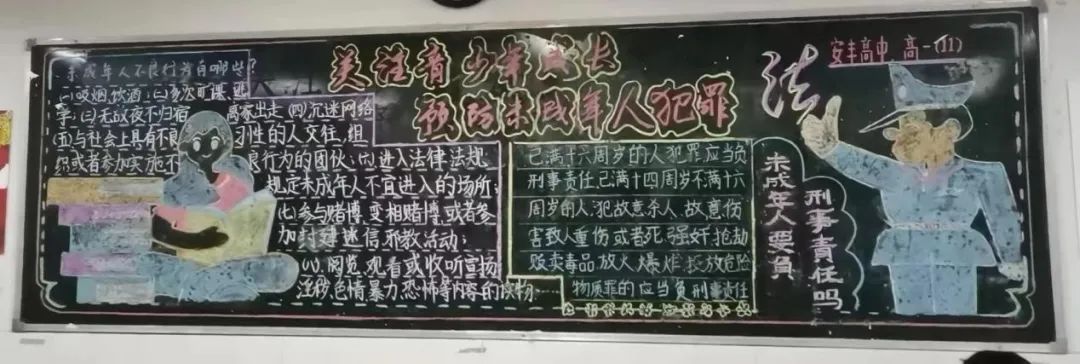 未成年人不良行为有哪些?
(一)吸烟、饮酒;(二)多次旷课、逃
学;(三)无故夜不归宿、离家出走;(四)沉迷网络
(五)与社会上具有不良习性的人交往,组
织或者参加实施不良行为的团伙;(六)进入法律法规
规定未成年人不宜进入的场所;
(七)参与赌博、变相赌博、或者参
加封建迷信、邪教活动;
(八)阅览、观看或收听宣扬
淫秽、色情、暴力、恐怖等内容的读物……
关注青少年成长
预防未成年人犯罪
已满十六周岁的人犯罪应当负
刑事责任,已满十四周岁不满十六
周岁的人,犯故意杀人、故意伤
害致人重伤或者死、强奸、抢劫
贩卖毒品、放火、爆炸、投放危险
物质罪的应当负刑事责任
法
安丰高中 高一(11)
未成年人要負
刑事責任吗